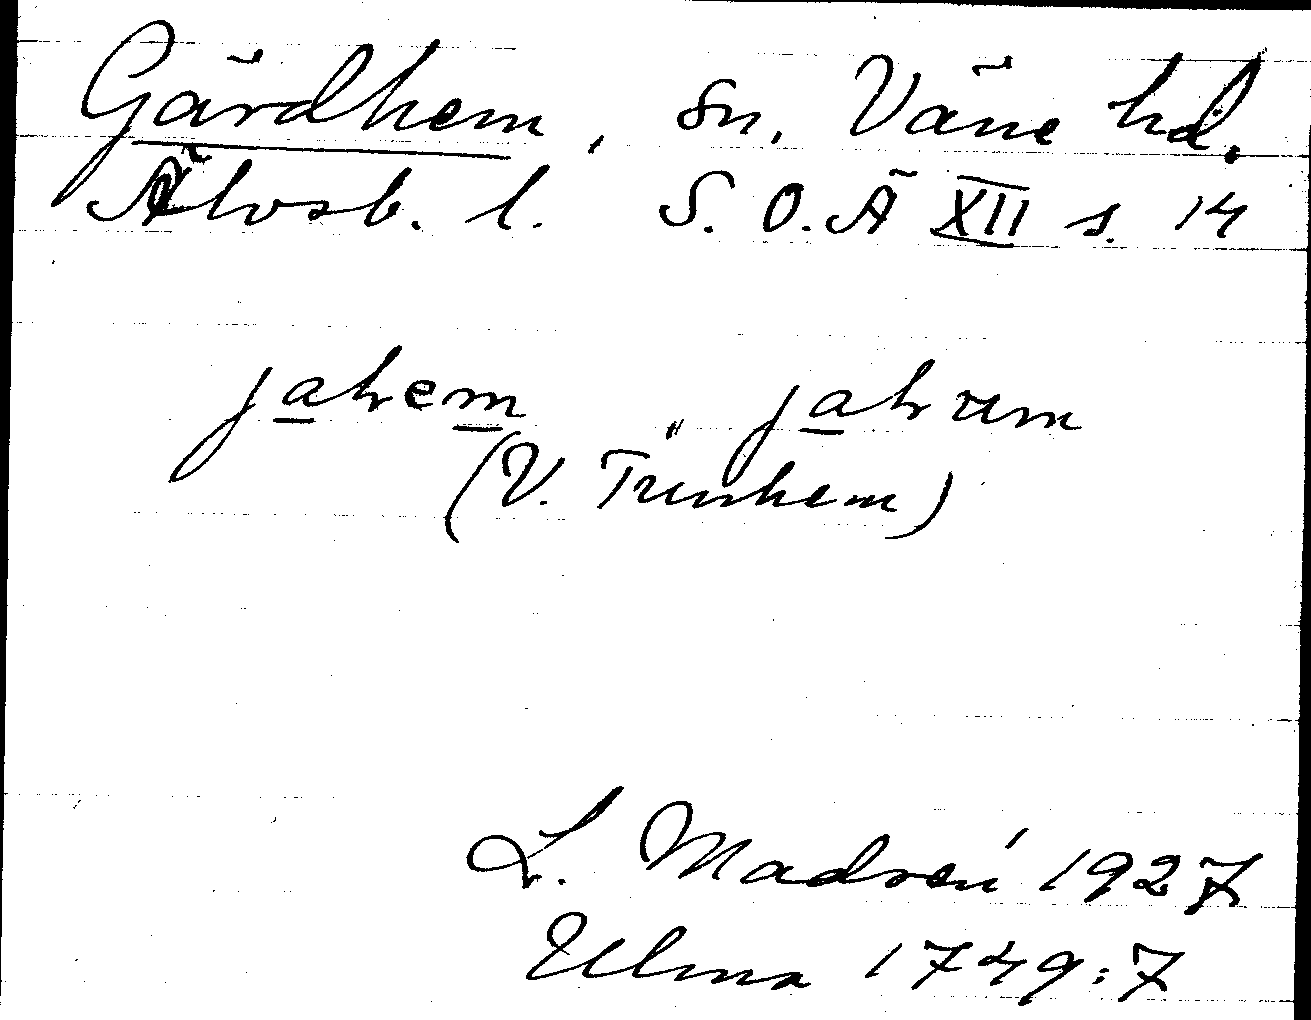 Gärdhem, sn, Väne hd.
Älvsb. l. S. O. Ä XII s. 14
jahem "jahrum
(V. Tunhem)
1927
Ulma 1749:7